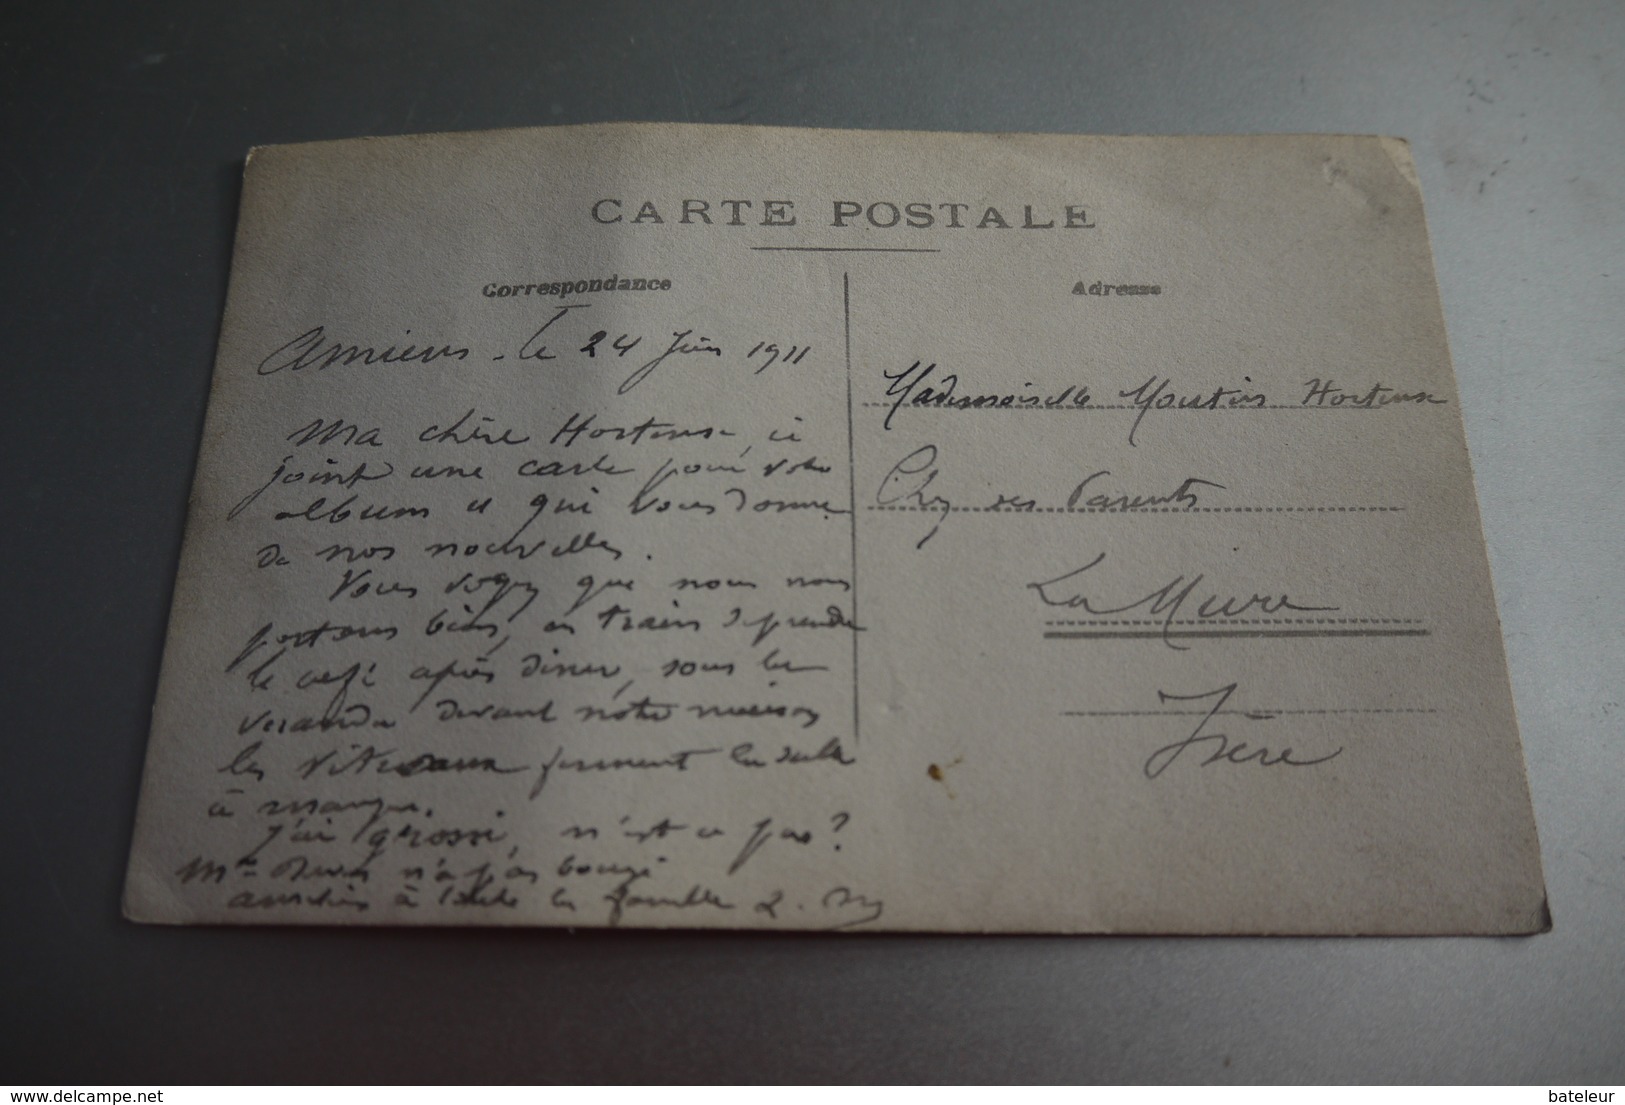 CARTE POSTALE
Correspondance
Amiens - le 24 Juin 1911
Ma chère Hortense, ci
joint une carte pour votre
album et qui vous donne
de nos nouvelles.
Vous voyez que nous nous
portons bien, en train de prendre
le café après diner, sous la
veranda devant notre maison
les vitraux ferment la salle
à manger.
J'ai grossi, n'est ce pas?
Mme n'a pas bougé
à toute la famille
Adresse
Mademoiselle Moutins Hortense
Chez ses Parents
La Mure
Isère
delcampe.net
bateleur